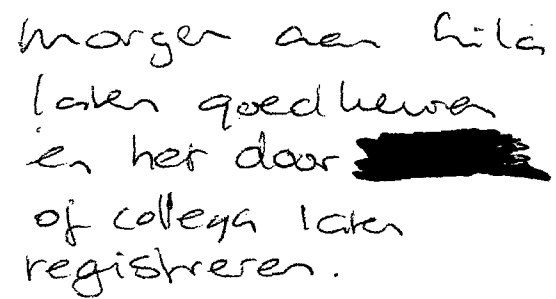 morgen aan
laten goedkeuren
en het door
of collega laten
registreren.